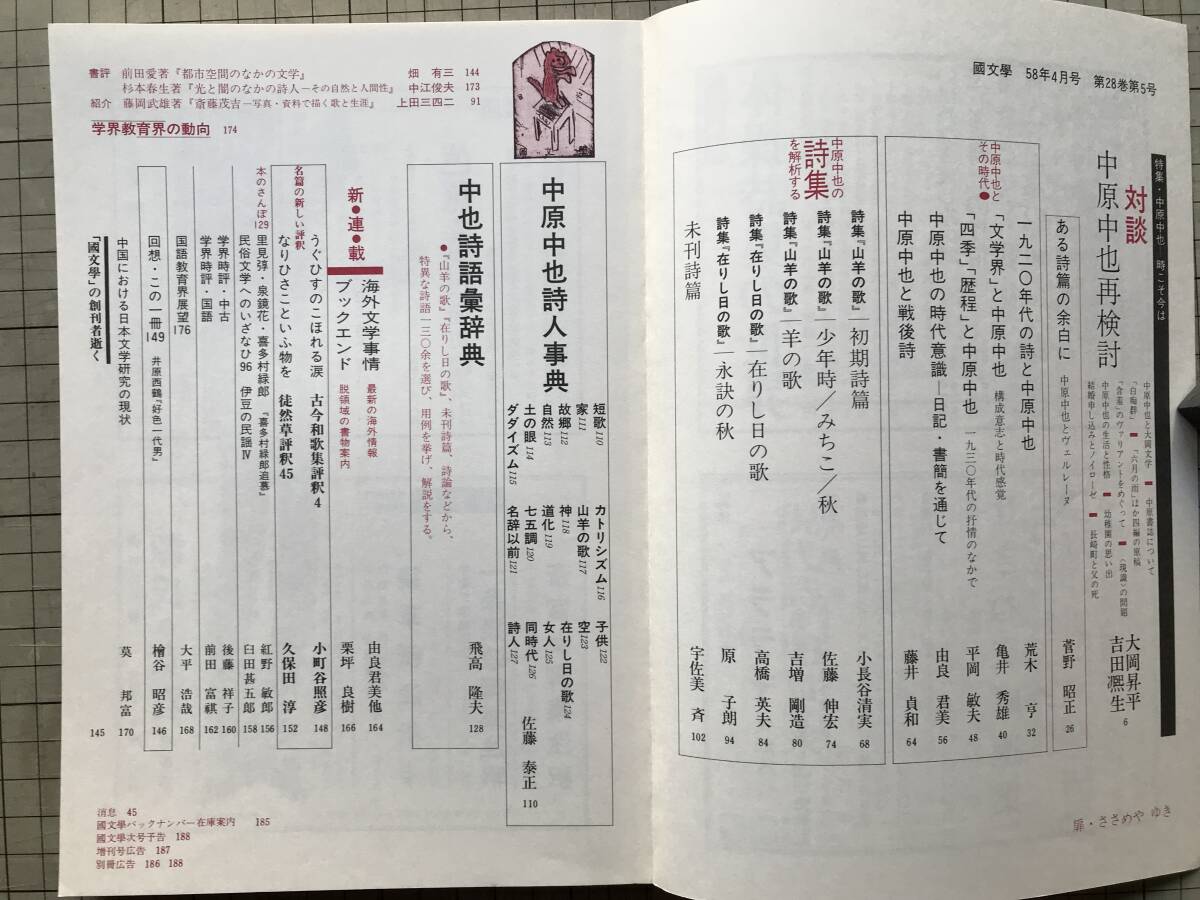 國文學 58年4月号 第28巻第5号
特集・中原中也 時こそ今は
対談
中原中也再検討
中原中也と大岡文学 ━ 中原書誌について
「白痴群」━「六月の雨」ほか四編の原稿
「含羞」のヴァリアントをめぐって ━〈現識〉の問題
中原中也の生活と性格 ━ 幼稚園の思い出
結婚申し込みとノイローゼ ━ 長崎町と父の死
大岡昇平
吉田凞生
6
ある詩篇の余白に 中原中也とヴェルレーヌ 菅野 昭正 26
中原中也と
その時代●
一九二〇年代の詩と中原中也 荒木 亨 32
「文学界」と中原中也 構成意志と時代感覚 亀井 秀雄 40
「四季」「歴程」と中原中也 一九三〇年代の抒情のなかで 平岡 敏夫 48
中原中也の時代意識―日記・書簡を通じて 由良 君美 56
中原中也と戦後詩 藤井 貞和 64
中原中也の
詩集
を解析する
詩集『山羊の歌』―初期詩篇 小長谷清実 68
詩集『山羊の歌』―少年時/みちこ/秋 佐藤 伸宏 74
詩集『山羊の歌』―羊の歌 吉増 剛造 80
詩集『在りし日の歌』―在りし日の歌 高橋 英夫 84
詩集『在りし日の歌』―永訣の秋 原 子朗 94
未刊詩篇 宇佐美 斉 102
扉・ささめや ゆき
中原中也詩人事典
短歌 110
家 111
故郷 112
自然 113
土の眼 114
ダダイズム 115
カトリシズム 116
山羊の歌 117
神 118
道化 119
七五調 120
名辞以前 121
子供 122
空 123
在りし日の歌 124
女人 125
同時代 126
詩人 127
佐藤 泰正 110
中也詩語彙辞典
●『山羊の歌』『在りし日の歌』、未刊詩篇、詩論などから、
特異な詩語一三〇余を選び、用例を挙げ、解説をする。
飛高 隆夫 128
新●連●載
海外文学事情 最新の海外情報 由良君美他 164
ブックエンド 脱領域の書物案内 栗坪 良樹 166
名篇の新しい評釈
うぐひすのこほれる涙 古今和歌集評釈 4 小町谷照彦 148
なりひさこといふ物を 徒然草評釈 45 久保田 淳 152
本のさんぽ129 里見弴・泉鏡花・喜多村緑郎 『喜多村緑郎追慕』 紅野 敏郎 156
民俗文学へのいざなひ96 伊豆の民謡Ⅳ 臼田甚五郎 158
学界時評・中古 後藤 祥子 160
学界時評・国語 前田 富祺 162
国語教育界展望176 大平 浩哉 168
回想・この一冊149 井原西鶴『好色一代男』 檜谷 昭彦 146
中国における日本文学研究の現状 莫 邦富 170
「國文學」の創刊者逝く 145
書評 前田愛著『都市空間のなかの文学』 畑 有三 144
杉本春生著『光と闇のなかの詩人―その自然と人間性』 中江俊夫 173
紹介 藤岡武雄著『斎藤茂吉―写真・資料で描く歌と生涯』 上田三四二 91
学界教育界の動向 174
消息 45
國文學バックナンバー在庫案内 185
國文學次号予告 188
増刊号広告 187
別冊広告 186 188